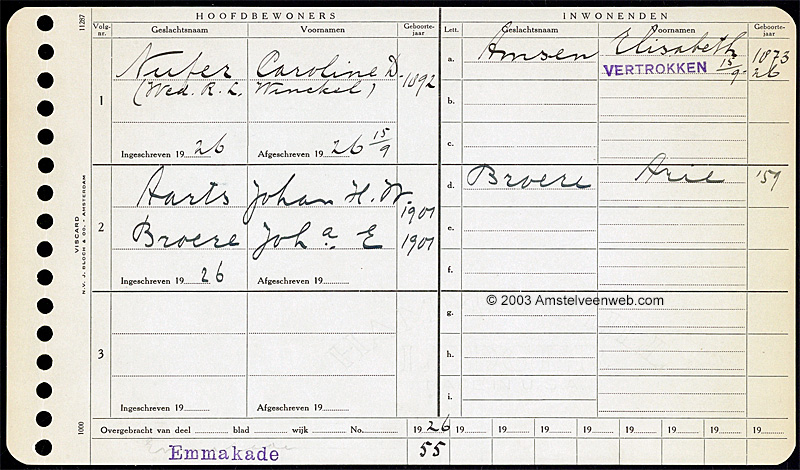 HOOFDBEWONERS
INWONENDEN
Volg-nr. Geslachtsnaam Voornamen Geboorte-jaar Lett. Geslachtsnaam Voornamen Geboorte-jaar
11287
1 Caroline D. 1892
(Wed. R. L. Winckel)
Ingeschreven 19 26 Afgeschreven 19 26 15/9
a. Amsen Elisabeth 1873
VERTROKKEN 15/9 26
b.
c.
2 Aarts Johan H. W. 1901
Broere Joh a. E 1901
Ingeschreven 19 26 Afgeschreven 19
d. Broere Arie '57
e.
f.
© 2003 Amstelveenweb.com
3
Ingeschreven 19 Afgeschreven 19
g.
h.
i.
VISCARD
N.V. J. BLOCH & CO. - AMSTERDAM
1000
Overgebracht van deel blad wijk No. 19 26 19 19 19 19 19 19 19 19
Emmakade 55